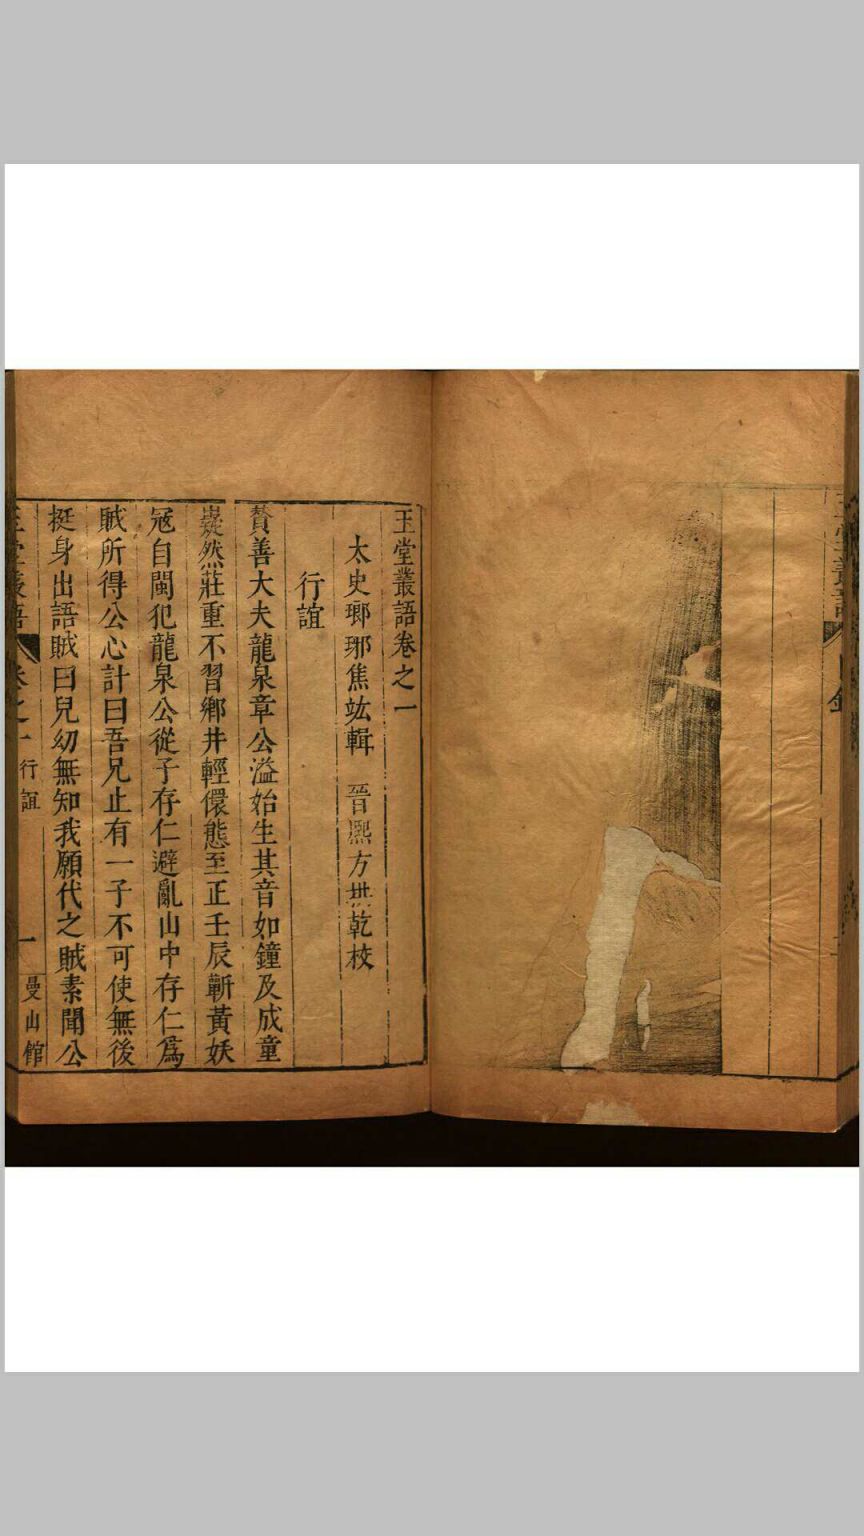 玉堂叢語
目錄
玉堂叢語卷之一
太史瑯琊焦竑輯　晉熙方拱乾校
行誼
贊善大夫龍泉章公溢始生其音如鐘及成童
嶷然莊重不習鄉井輕儇態至正壬辰蘄黃妖
冦自閩犯龍泉公從子存仁避亂山中存仁爲
賊所得公心計曰吾兄止有一子不可使無後
挺身出語賊曰兒幼無知我願代之賊素聞公
玉堂叢語　卷之一　行誼　一　曼山館